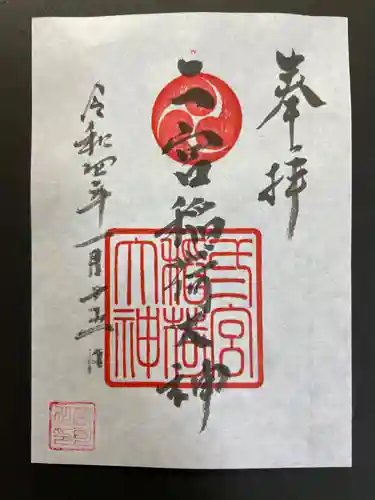 奉拝
二宮稲荷大神
二宮
稲荷
大神
令和四年一月十五日